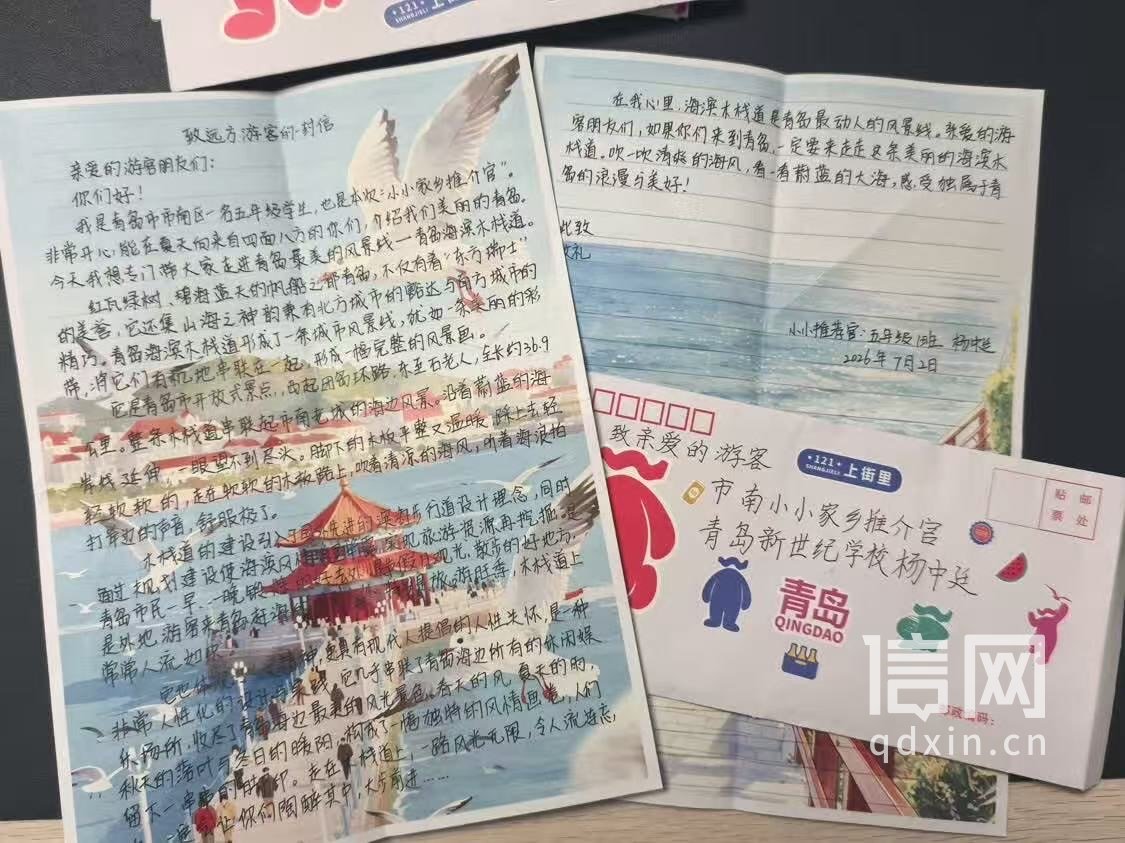 121
SHANGJIELI
上街里
致远方游客的一封信
亲爱的游客朋友们：
你们好！
我是青岛市市南区一名五年级学生，也是本次“小小家乡推介官”。
非常开心能在夏天向来自四面八方的你们，介绍我们美丽的青岛。
今天我想专门带大家走进青岛最美的风景线—青岛海滨木栈道。
红瓦绿树，碧海蓝天的帆船之都青岛，不仅有着“东方瑞士”
的美誉，它还集山海之神韵兼有北方城市的豁达与南方城市的
精巧。青岛海滨木栈道形成了一条城市风景线，就如一条美丽的彩
带，将它们有机地串联在一起，形成一幅完整的风景画。
它是青岛市开放式景点，西起团岛环路，东至石老人，全长约36.9
公里。整条木栈道串联起市南老城的海边风景。沿着蔚蓝的海
岸线延伸，一眼望不到尽头。脚下的木板平整又温暖，踩上去轻
轻软软的，走在软软的木板路上，吹着清凉的海风，听着海浪拍
打岸边的声音，舒服极了。
木栈道的建设引入了国外先进的滨海步行道设计理念，同时
通过规划建设使海滨风 旅游资源再挖掘。是
青岛市民一早一晚锻 观光，散步的好地方。
是外地游客来青岛赶海 旅游旺季，木栈道上
常常人流如
它也体 神，更具有现代人提倡的人性关怀，是一种
非常人性化的设计与实践，它几乎串联了青岛海边所有的休闲娱
乐场所，收尽了青岛海边最美的风光景色。春天的风，夏天的雨，
秋天的落叶与冬日的暖阳，构成了一幅独特的风情画卷，人们
留下一串串的脚印。走在木栈道上，一路风光无限，令人流连忘
让你们陶醉其中，大步前进……
在我心里，海滨木栈道是青岛最动人的风景线。亲爱的游
客朋友们，如果你们来到青岛，一定要来走走这条美丽的海滨木
栈道。吹一吹清爽的海风，看一看蔚蓝的大海，感受独属于青
岛的浪漫与美好！
此致
敬礼
小小推荐官：五年级1班 杨中廷
2026年7月2日
致亲爱的游客
121
SHANGJIELI
上街里
贴 邮
票 处
市南小小家乡推介官
青岛新世纪学校杨中廷
青岛
QINGDAO
邮政编码：
信网
qdxin.cn